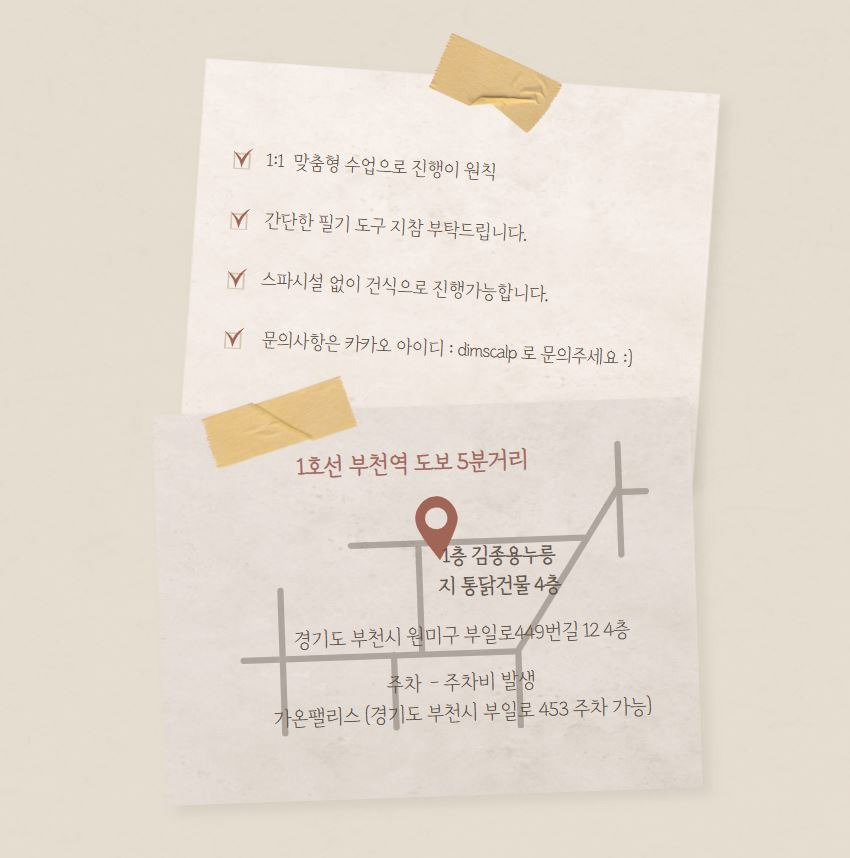 1:1 맞춤형 수업으로 진행이 원칙
간단한 필기 도구 지참 부탁드립니다.
스파시설 없이 건식으로 진행가능합니다.
문의사항은 카카오 아이디 : dimscalp 로 문의주세요 :)
1호선 부천역 도보 5분거리
1층 김종용누룽
지 통닭건물 4층
경기도 부천시 원미구 부일로449번길 12 4층
주차 - 주차비 발생
가온팰리스 (경기도 부천시 부일로 453 주차 가능)